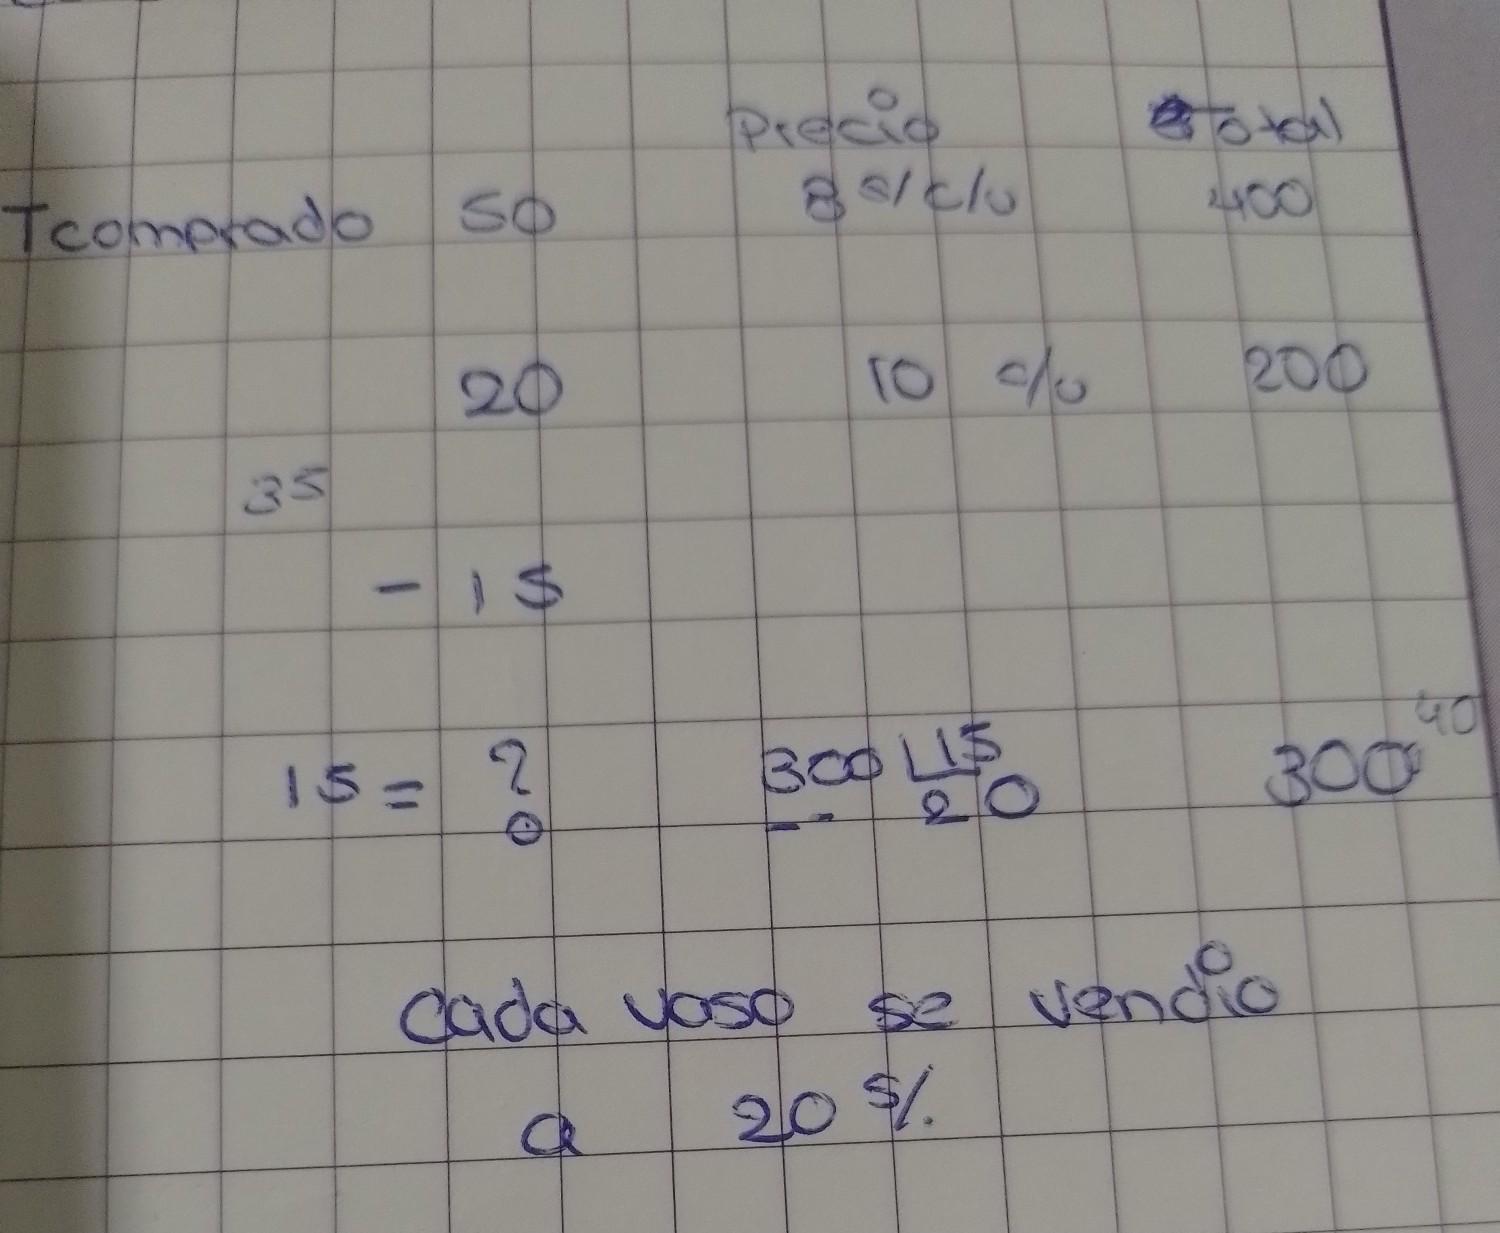 Precio Total
Tcomprado 50 8 s/ c/u 400
20 10 c/u 200
35
- 15
15 = ? 300 15 300 40
20
Cada vaso se vendio
a 20 s/.